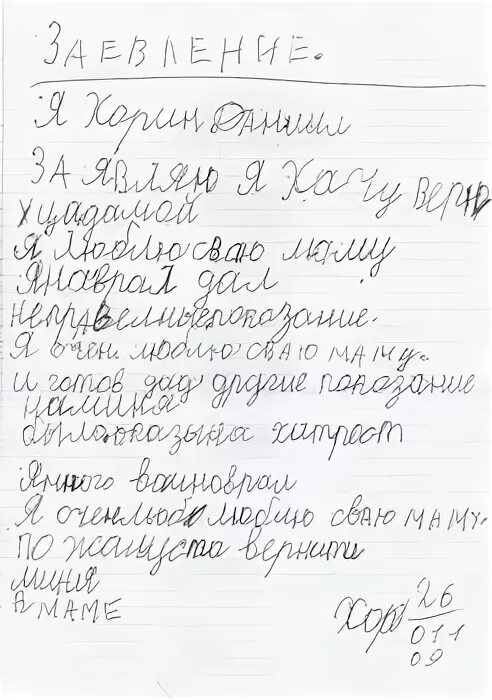 ЗАЕВЛЕНИЕ.
Я Хорин Даниил
ЗАЯВЛЯЮ Я ХАЧУ верну
ухцадамой
Я люблю сваю маму
Янаврал дал
неправелныепоказание.
Я очен люблю сваю маму.
и готов дад другие показание
наминя
былооказына хитрост
Ямного вамноврал
Я оченлюбл люблю сваю маму.
по жалуста вернити
миня
а маме
Хор 26
011
09